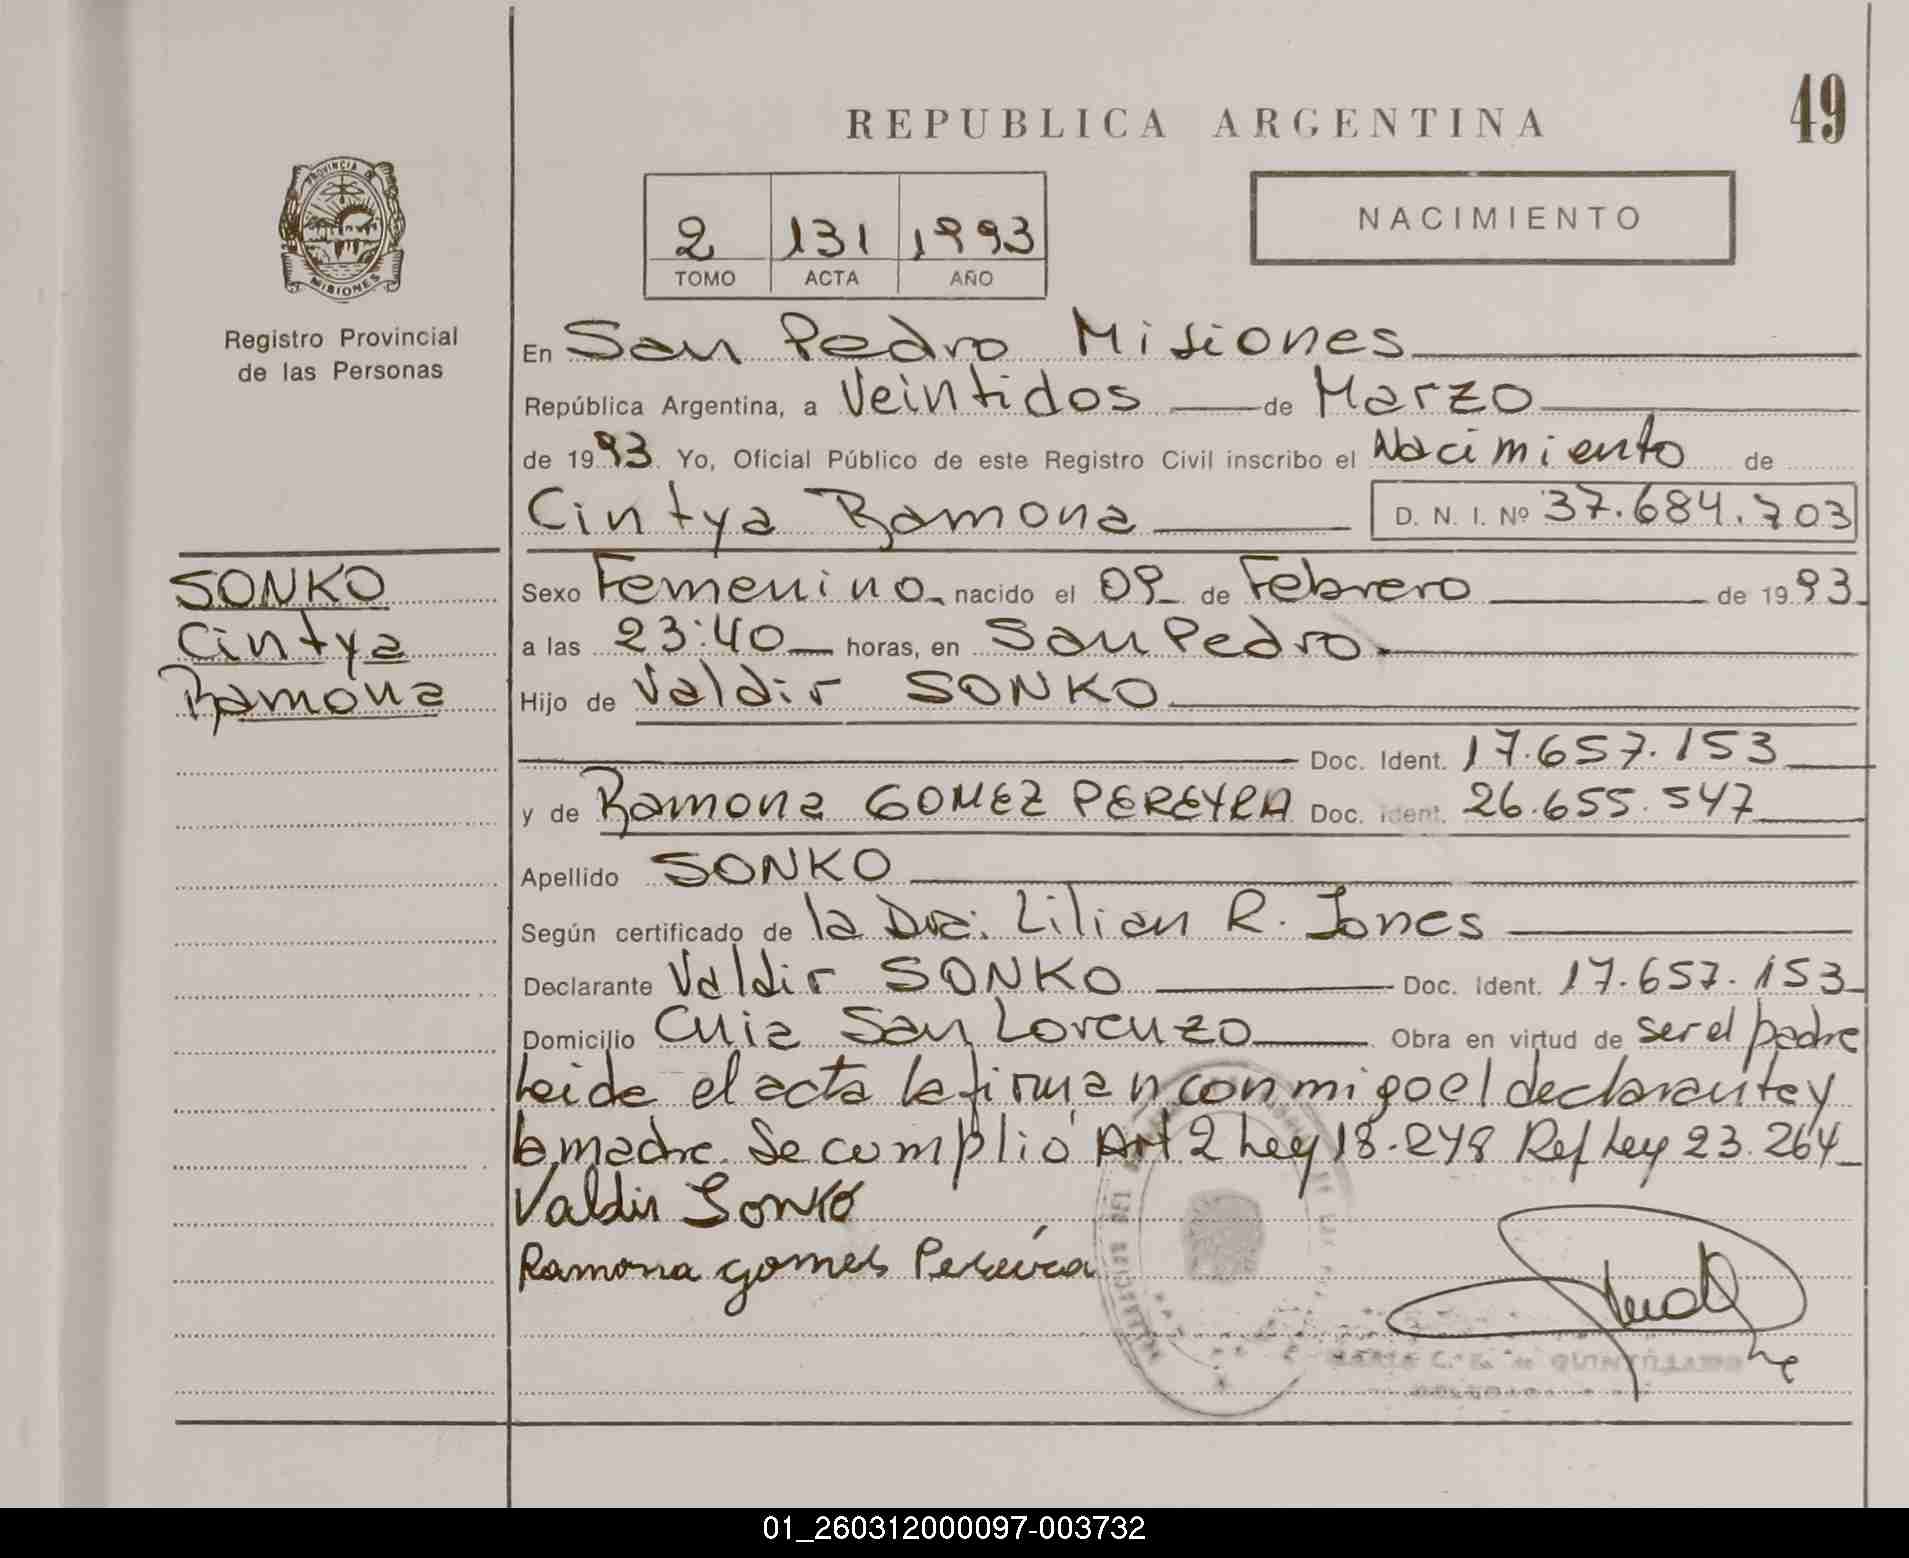 REPUBLICA ARGENTINA
49
PROVINCIA DE
MISIONES
Registro Provincial
de las Personas
2 131 1993
TOMO ACTA AÑO
NACIMIENTO
En San Pedro Misiones
República Argentina, a Veintidos de Marzo
de 1993. Yo, Oficial Público de este Registro Civil inscribo el Nacimiento de
Cintya Ramona D. N. I. Nº 37.684.703
SONKO
Cintya
Ramona
Sexo Femenino nacido el 09 de Febrero de 1993
a las 23:40 horas, en San Pedro.
Hijo de Valdir SONKO
Doc. Ident. 17.657.153
y de Ramona GOMEZ PEREYRA Doc. Ident. 26.655.547
Apellido SONKO
Según certificado de la Dra. Lilian R. Jones
Declarante Valdir SONKO Doc. Ident. 17.657.153
Domicilio Cnia San Lorenzo Obra en virtud de ser el padre
Leida el acta la firman conmigo el declarante y
la madre. Se cumplió Art 2 Ley 18.248 Ref Ley 23.264
Valdir Sonko
Ramona gomes Pereira
MARIA C. E. de QUINTILIANO
01_260312000097-003732